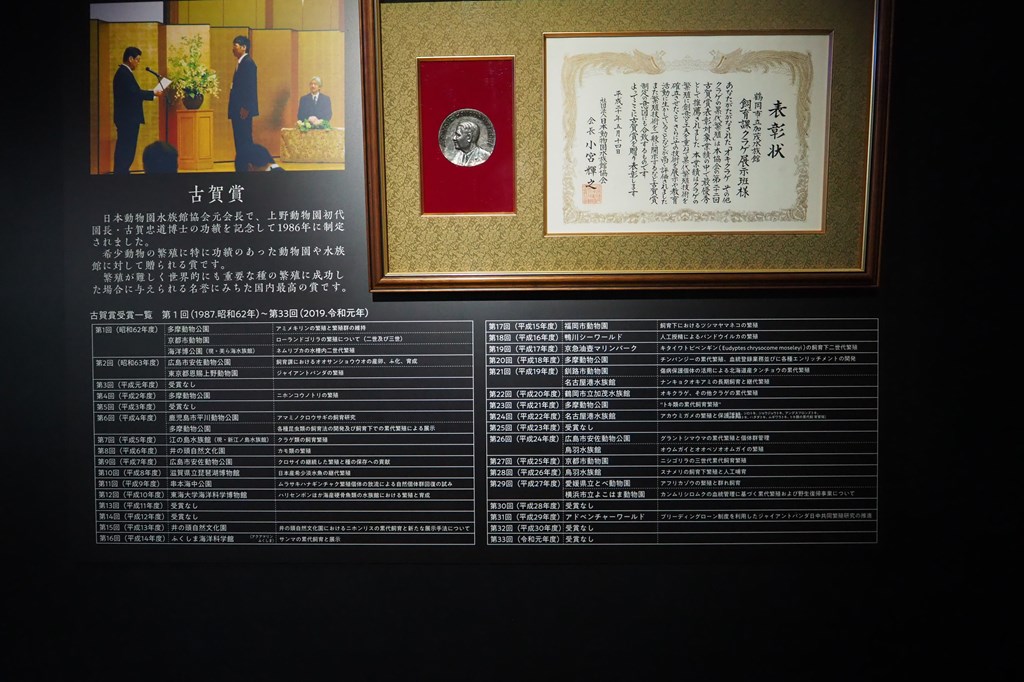 表彰状
鶴岡市立加茂水族館
飼育課クラゲ展示班様
あなたがたがなされた「オキクラゲ、その他
クラゲの累代繁殖」は本協会の第二十二回
古賀賞表彰対象業績の中で最優秀
として推薦されました
平成二十年五月二十四日
社団法人日本動物園水族館協会
会長 小宮輝之
古賀賞
日本動物園水族館協会元会長で、上野動物園初代
園長・古賀忠道博士の功績を記念して1986年に制定
されました。
希少動物の繁殖に特に功績のあった動物園や水族
館に対して贈られる賞です。
繁殖が難しく世界的にも重要な種の繁殖に成功し
た場合に与えられる名誉にみちた国内最高の賞です。
古賀賞受賞一覧 第1回（1987.昭和62年）～第33回（2019.令和元年）
第1回（昭和62年度） 多摩動物公園 アミメキリンの繁殖と繁殖群の維持
京都市動物園 ローランドゴリラの繁殖について（二世及び三世）
海洋博公園（現・美ら海水族館） ネムリブカの水槽内二世代繁殖
第2回（昭和63年度） 広島市安佐動物公園 飼育課におけるオオサンショウウオの産卵、ふ化、育成
東京都恩賜上野動物園 ジャイアントパンダの繁殖
第3回（平成元年度） 受賞なし
第4回（平成2年度） 多摩動物公園 ニホンコウノトリの繁殖
第5回（平成3年度） 受賞なし
第6回（平成4年度） 鹿児島市平川動物公園 アマミノクロウサギの飼育研究
多摩動物公園 各種昆虫類の飼育法の開発及び飼育下での累代繁殖による展示
第7回（平成5年度） 江の島水族館（現・新江ノ島水族館） クラゲ類の飼育繁殖
第8回（平成6年度） 井の頭自然文化園 カモ類の繁殖
第9回（平成7年度） 広島市安佐動物公園 クロサイの継続した繁殖と種の保存への貢献
第10回（平成8年度） 滋賀県立琵琶湖博物館 日本産希少淡水魚の継代繁殖
第11回（平成9年度） 串本海中公園 ムラサキハナギンチャク繁殖個体の放流による自然個体群回復の試み
第12回（平成10年度） 東海大学海洋科学博物館 ハリセンボンほか海産硬骨魚類の水族館における繁殖と育成
第13回（平成11年度） 受賞なし
第14回（平成12年度） 受賞なし
第15回（平成13年度） 井の頭自然文化園 井の頭自然文化園におけるニホンリスの累代飼育と新たな展示手法について
第16回（平成14年度） ふくしま海洋科学館（アクアマリンふくしま） サンマの累代飼育と展示
第17回（平成15年度） 福岡市動物園 飼育下におけるツシマヤマネコの繁殖
第18回（平成16年度） 鴨川シーワールド 人工授精によるバンドウイルカの繁殖
第19回（平成17年度） 京急油壺マリンパーク キタイワトビペンギン（Eudyptes chrysocome moseleyi）の飼育下二世代繁殖
第20回（平成18年度） 多摩動物公園 チンパンジーの累代繁殖、血統登録業務並びに各種エンリッチメントの開発
第21回（平成19年度） 釧路市動物園 傷病保護個体の活用による北海道産タンチョウの累代繁殖
名古屋港水族館 ナンキョクオキアミの長期飼育と継代繁殖
第22回（平成20年度） 鶴岡市立加茂水族館 オキクラゲ、その他クラゲの累代繁殖
第23回（平成21年度） 多摩動物公園 “トキ類の累代飼育繁殖”
第24回（平成22年度） 名古屋港水族館 アカウミガメの繁殖と保護
第25回（平成23年度） 受賞なし
第26回（平成24年度） 広島市安佐動物公園 グラントシマウマの累代繁殖と個体群管理
鳥羽水族館 オウムガイとオオベソオオムガイの繁殖
第27回（平成25年度） 京都市動物園 ニシゴリラの三世代累代飼育繁殖
第28回（平成26年度） 鳥羽水族館 スナメリの飼育下繁殖と人工哺育
第29回（平成27年度） 愛媛県立とべ動物園 アフリカゾウの繁殖と群れ飼育
横浜市立よこはま動物園 カンムリシロムクの血統管理に基づく累代繁殖および野生復帰事業について
第30回（平成28年度） 受賞なし
第31回（平成29年度） アドベンチャーワールド ブリーディングローン制度を利用したジャイアントパンダ日中共同繁殖研究の推進
第32回（平成30年度） 受賞なし
第33回（令和元年度） 受賞なし